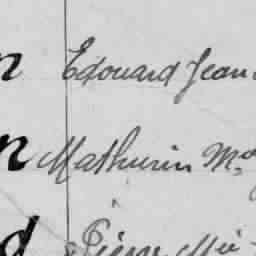 n Edouard Jean
n Mathurin M
d Pierre Mie